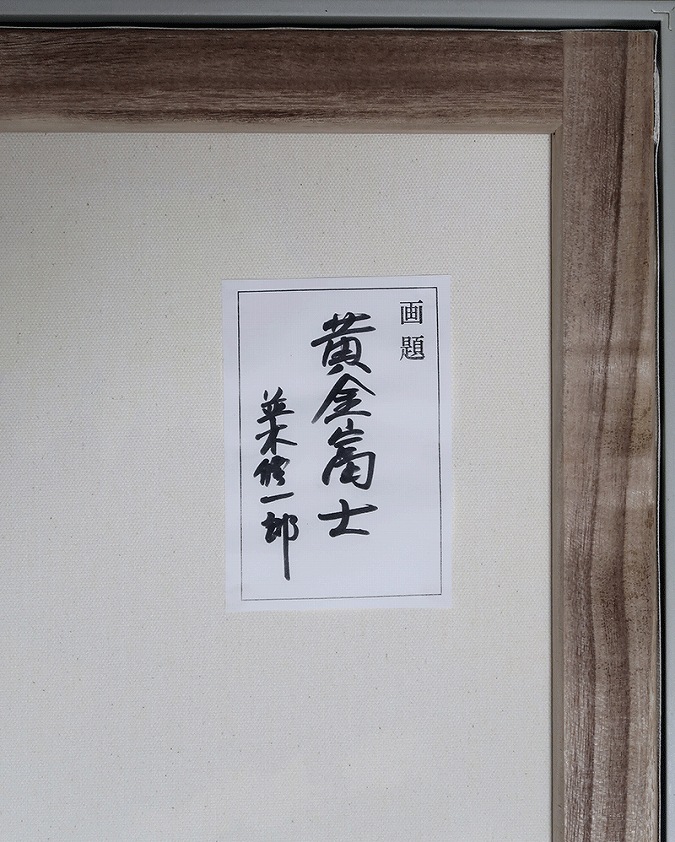 画題
黄金富士
並木修一郎